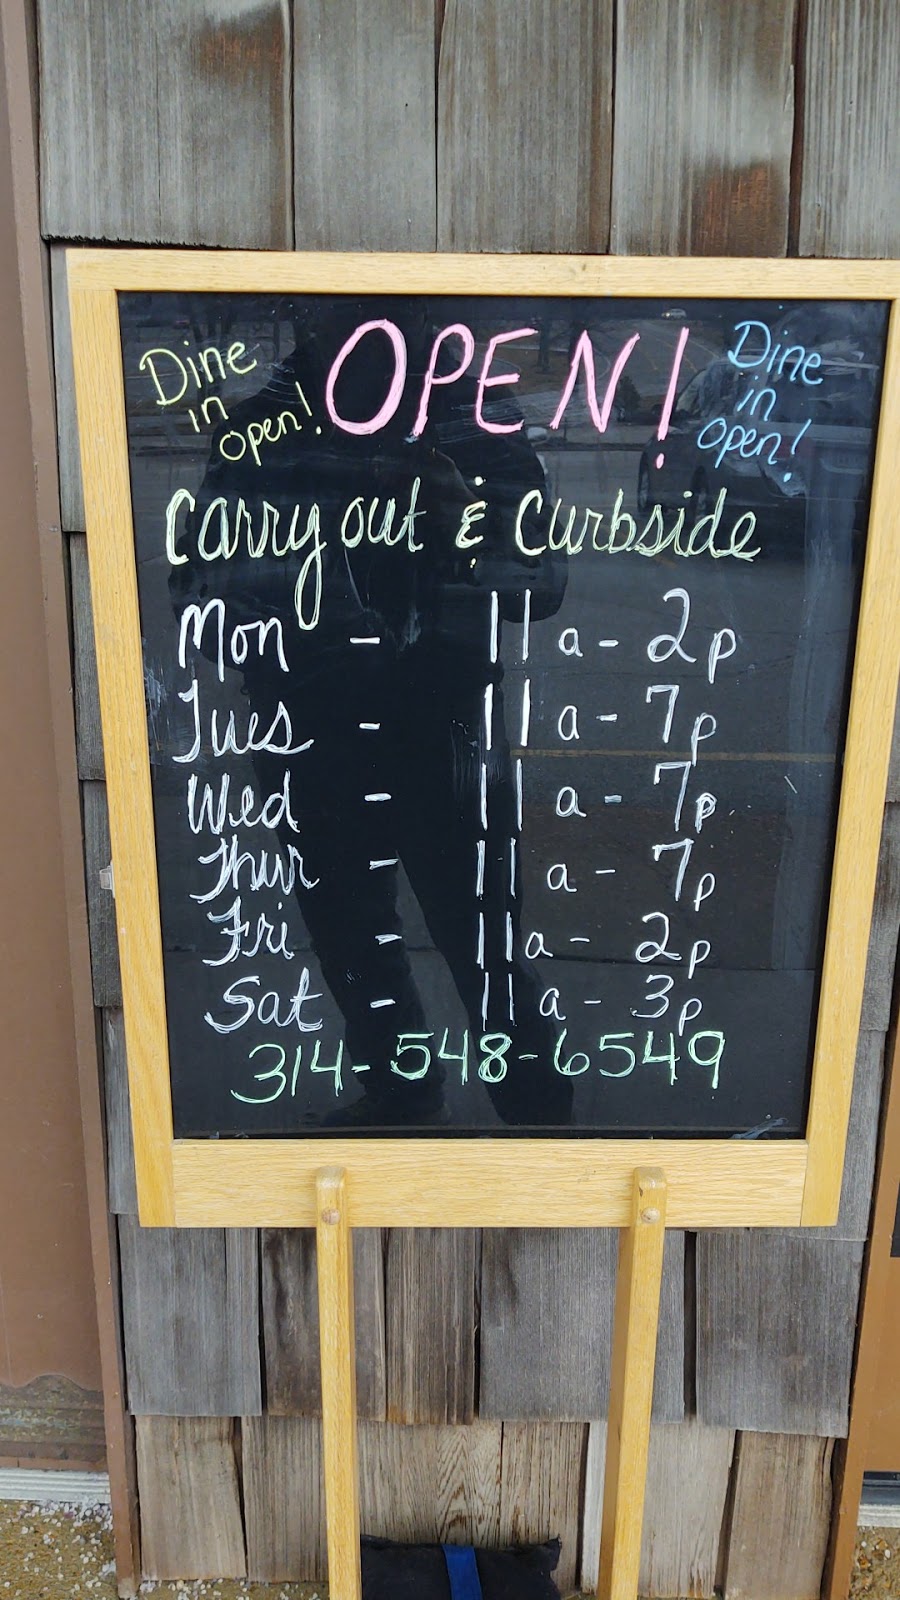 Dine in open!
OPEN!
Dine in open!
Carry out & Curbside
Mon - 11a - 2p
Tues - 11a - 7p
Wed - 11a - 7p
Thur - 11a - 7p
Fri - 11a - 2p
Sat - 11a - 3p
314-548-6549